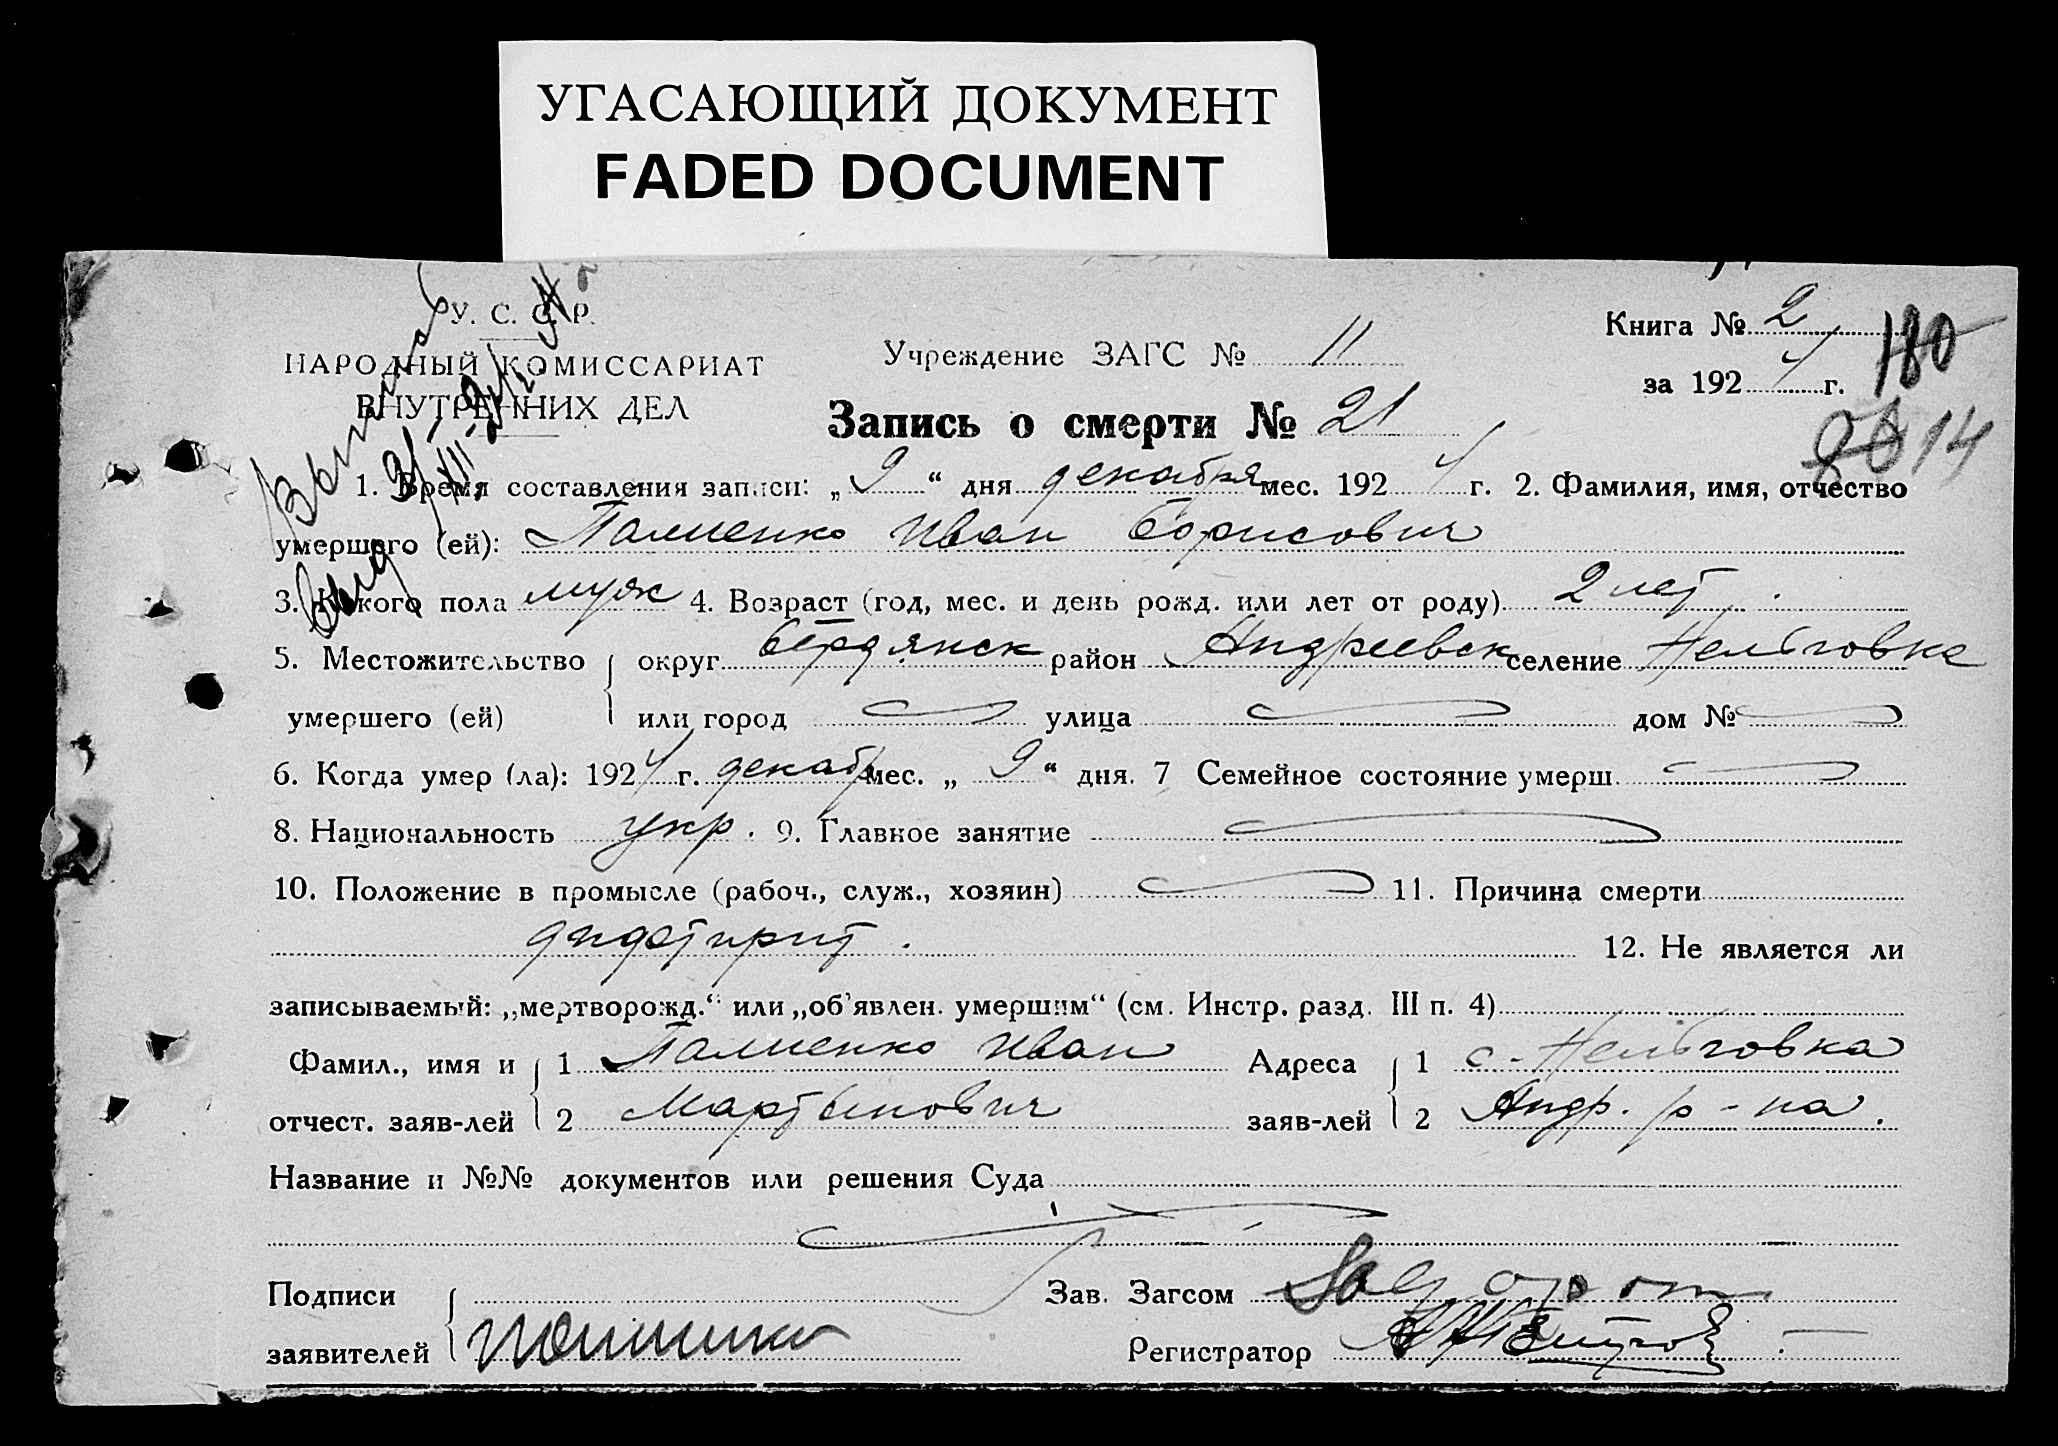 УГАСАЮЩИЙ ДОКУМЕНТ
FADED DOCUMENT
У. С. С. Р.
НАРОДНЫЙ КОМИССАРИАТ
ВНУТРЕННИХ ДЕЛ
Учреждение ЗАГС № 11
Книга № 2
за 1924 г.
180
14
Запись о смерти № 21
1. Время составления записи: „9“ дня декабря мес. 1924 г. 2. Фамилия, имя, отчество
умершего (ей): Палиенко Иван Борисович
3. Какого пола муж 4. Возраст (год, мес. и день рожд. или лет от роду) 2 лет.
5. Местожительство умершего (ей) округ Бердянск район Андреевск селение Нельговка
или город улица дом №
6. Когда умер (ла): 1924 г. декабр мес. „9“ дня. 7 Семейное состояние умерш.
8. Национальность укр. 9. Главное занятие
10. Положение в промысле (рабоч., служ., хозяин) 11. Причина смерти
12. Не является ли
записываемый: „мертворожд.“ или „об'явлен. умершим“ (см. Инстр. разд. III п. 4)
Фамил., имя и 1 Палиенко Иван Адреса 1 с. Нельговка
отчест. заяв-лей 2 Мартынович заяв-лей 2 Андр. р-на.
Название и №№ документов или решения Суда
Подписи Зав. Загсом
заявителей Регистратор